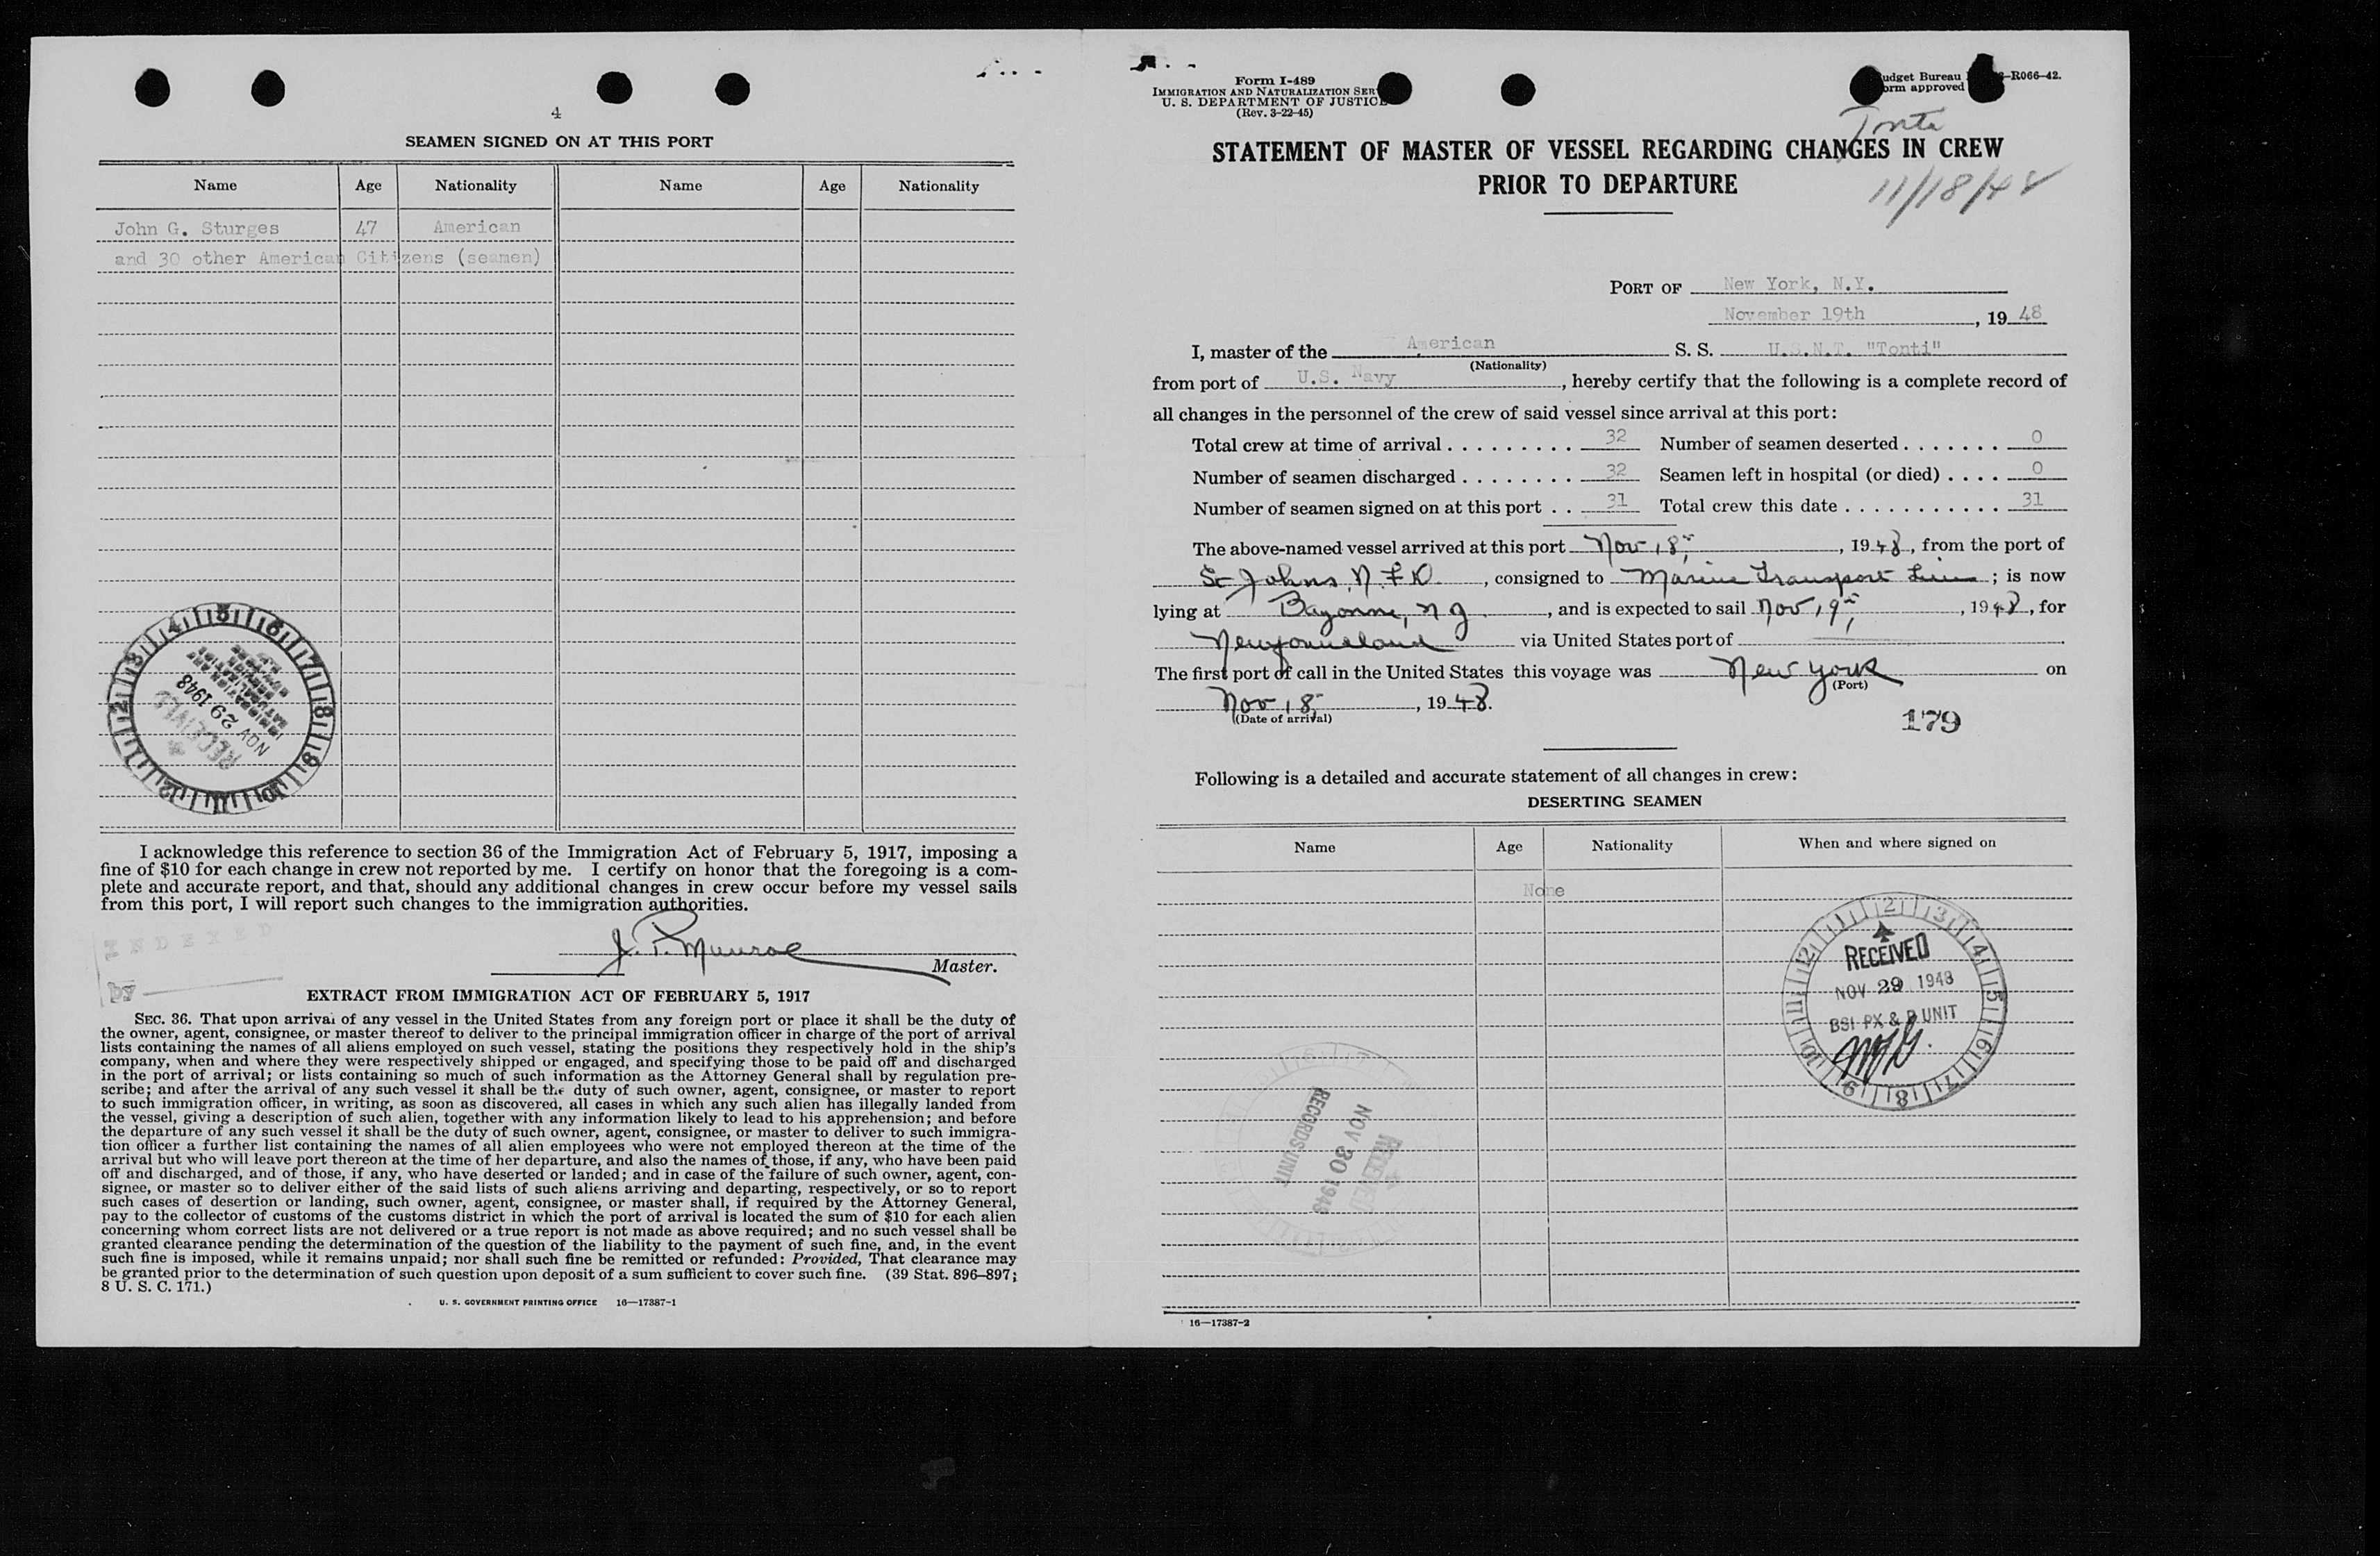 4
SEAMEN SIGNED ON AT THIS PORT
Name Age Nationality Name Age Nationality
John G. Sturges 47 American
and 30 other American Citizens (seamen)
RECEIVED
NOV 29 1948
I acknowledge this reference to section 36 of the Immigration Act of February 5, 1917, imposing a
fine of $10 for each change in crew not reported by me. I certify on honor that the foregoing is a com-
plete and accurate report, and that, should any additional changes in crew occur before my vessel sails
from this port, I will report such changes to the immigration authorities.
INDEXED
by
J. P. Munroe
Master.
EXTRACT FROM IMMIGRATION ACT OF FEBRUARY 5, 1917
SEC. 36. That upon arrival of any vessel in the United States from any foreign port or place it shall be the duty of
the owner, agent, consignee, or master thereof to deliver to the principal immigration officer in charge of the port of arrival
lists containing the names of all aliens employed on such vessel, stating the positions they respectively hold in the ship's
company, when and where they were respectively shipped or engaged, and specifying those to be paid off and discharged
in the port of arrival; or lists containing so much of such information as the Attorney General shall by regulation pre-
scribe; and after the arrival of any such vessel it shall be the duty of such owner, agent, consignee, or master to report
to such immigration officer, in writing, as soon as discovered, all cases in which any such alien has illegally landed from
the vessel, giving a description of such alien, together with any information likely to lead to his apprehension; and before
the departure of any such vessel it shall be the duty of such owner, agent, consignee, or master to deliver to such immigra-
tion officer a further list containing the names of all alien employees who were not employed thereon at the time of the
arrival but who will leave port thereon at the time of her departure, and also the names of those, if any, who have been paid
off and discharged, and of those, if any, who have deserted or landed; and in case of the failure of such owner, agent, con-
signee, or master so to deliver either of the said lists of such aliens arriving and departing, respectively, or so to report
such cases of desertion or landing, such owner, agent, consignee, or master shall, if required by the Attorney General,
pay to the collector of customs of the customs district in which the port of arrival is located the sum of $10 for each alien
concerning whom correct lists are not delivered or a true report is not made as above required; and no such vessel shall be
granted clearance pending the determination of the question of the liability to the payment of such fine, and, in the event
such fine is imposed, while it remains unpaid; nor shall such fine be remitted or refunded: Provided, That clearance may
be granted prior to the determination of such question upon deposit of a sum sufficient to cover such fine. (39 Stat. 896–897;
8 U. S. C. 171.)
U. S. GOVERNMENT PRINTING OFFICE 16—17387-1
Form I-489
IMMIGRATION AND NATURALIZATION SER
U. S. DEPARTMENT OF JUSTICE
(Rev. 3-22-45)
udget Bureau -R066-42.
orm approved
Tonti
STATEMENT OF MASTER OF VESSEL REGARDING CHANGES IN CREW
PRIOR TO DEPARTURE
11/18/48
PORT OF New York, N.Y.
November 19th, 1948
I, master of the American S. S. U.S.N.T. "Tonti"
(Nationality)
from port of U.S. Navy, hereby certify that the following is a complete record of
all changes in the personnel of the crew of said vessel since arrival at this port:
Total crew at time of arrival . . . . . . . . . 32 Number of seamen deserted . . . . . . . 0
Number of seamen discharged . . . . . . . . 32 Seamen left in hospital (or died) . . . . 0
Number of seamen signed on at this port . . 31 Total crew this date . . . . . . . . . . . 31
The above-named vessel arrived at this port Nov 18, 1948, from the port of
St Johns, N F D, consigned to Marine Transport Lines; is now
lying at Bayonne, N J, and is expected to sail Nov 19, 1948, for
Newfoundland via United States port of
The first port of call in the United States this voyage was New York on
(Port)
Nov 18, 1948.
(Date of arrival)
179
Following is a detailed and accurate statement of all changes in crew:
DESERTING SEAMEN
Name Age Nationality When and where signed on
None
RECEIVED
NOV 29 1948
BSI PX & P UNIT
RECEIVED
NOV 30 1948
RECORDS UNIT
16—17387-2